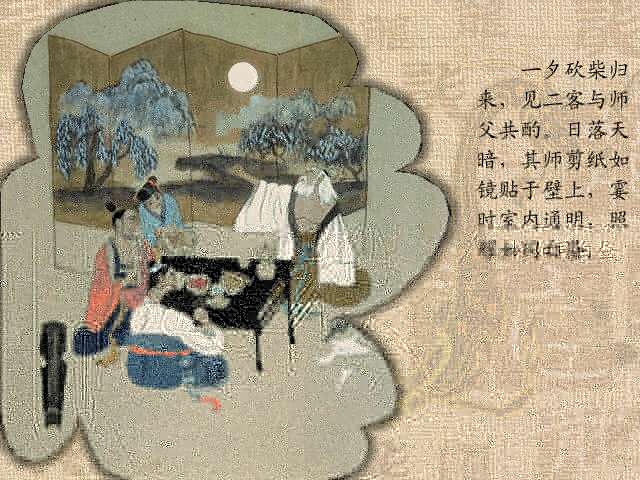 一夕砍柴归
来，见二客与师
父共酌。日落天
暗，其师剪纸如
镜贴于壁上，霎
时室内通明，照
耀